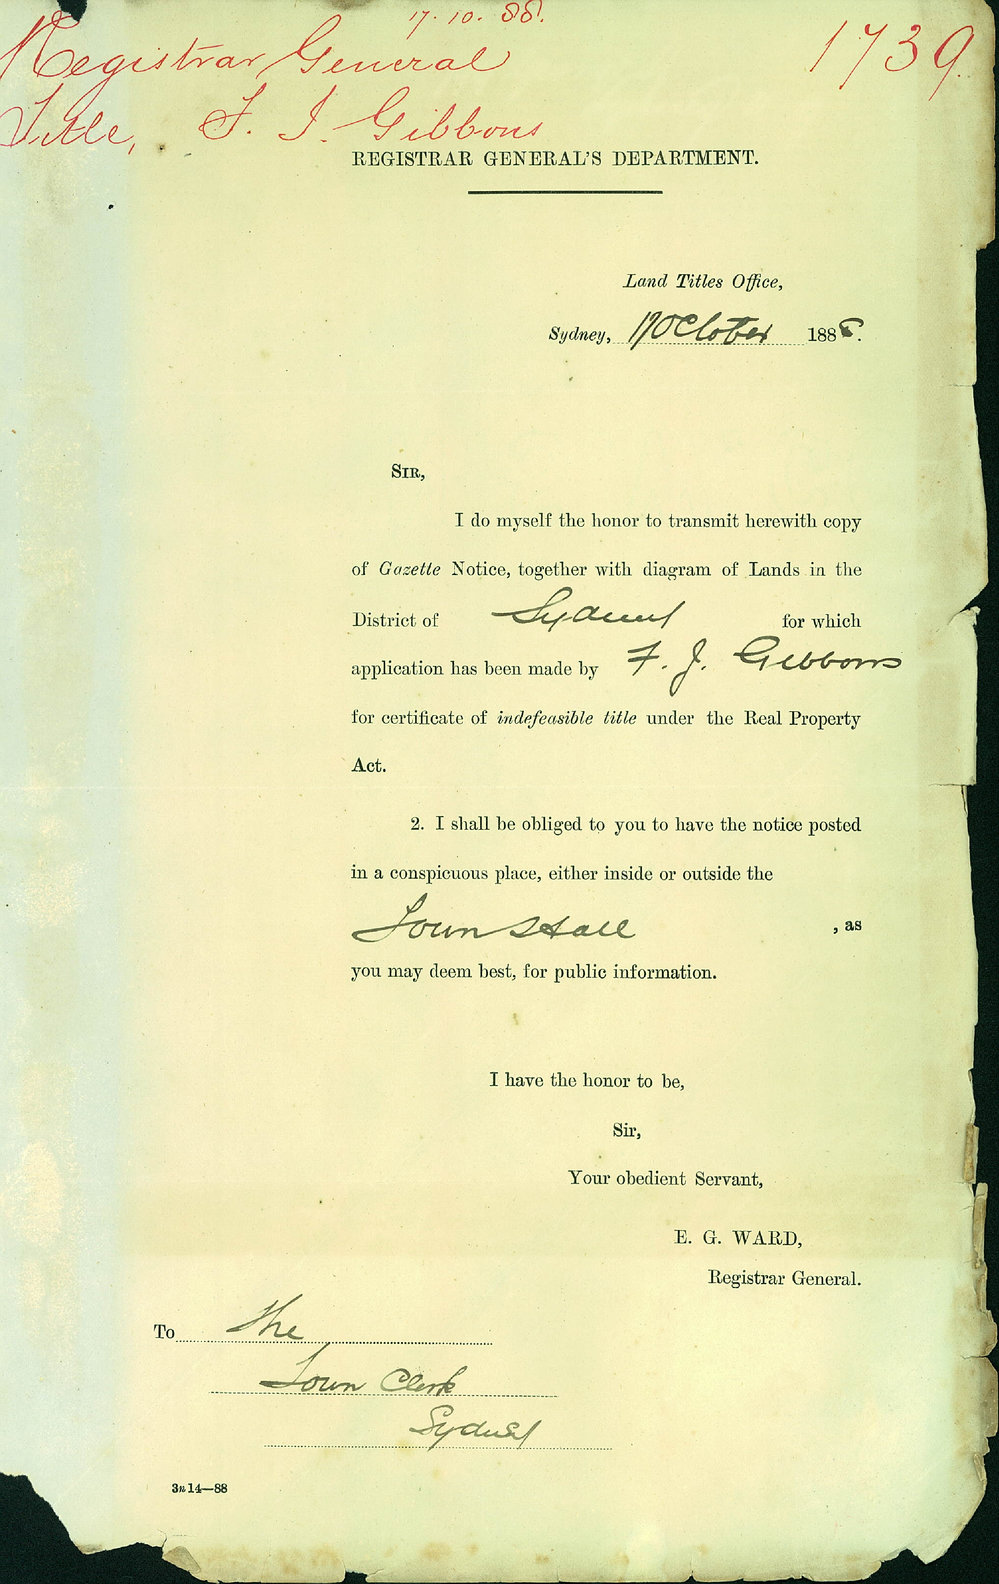 17.10.88.
Registrar General
1739.
Title, F. J. Gibbons
REGISTRAR GENERAL'S DEPARTMENT.
Land Titles Office,
Sydney, 17 October 1888.
SIR,
I do myself the honor to transmit herewith copy
of Gazette Notice, together with diagram of Lands in the
District of Sydney for which
application has been made by F. J. Gibbons
for certificate of indefeasible title under the Real Property
Act.
2. I shall be obliged to you to have the notice posted
in a conspicuous place, either inside or outside the
Town Hall , as
you may deem best, for public information.
I have the honor to be,
Sir,
Your obedient Servant,
E. G. WARD,
Registrar General.
To the
Town Clerk
Sydney
3n14—88